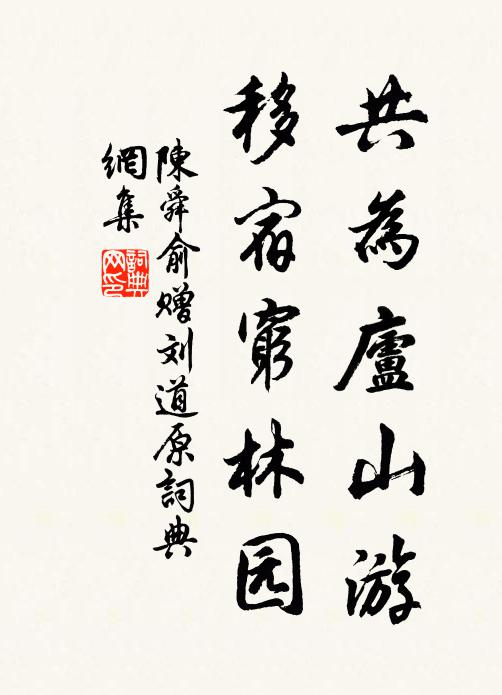 共為廬山游
移宿窮林园
陳舜俞赠刘道原詞典
網集
詞典
网印